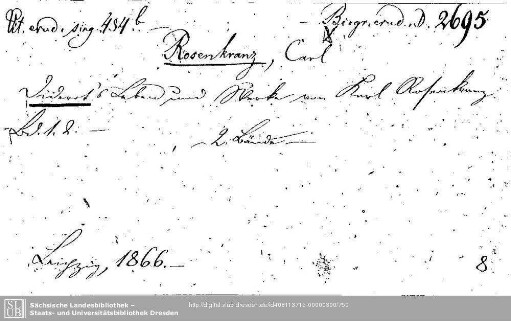 Lit. erud. sing. 434.b – Biogr. erud. D. 2695
Rosenkranz, Carl
Diderot's Leben und Werke von Karl Rosenkranz.
Bd. 1. 2. –
2 Bände –
Leipzig, 1866. – 8
Sächsische Landesbibliothek –
Staats- und Universitätsbibliothek Dresden